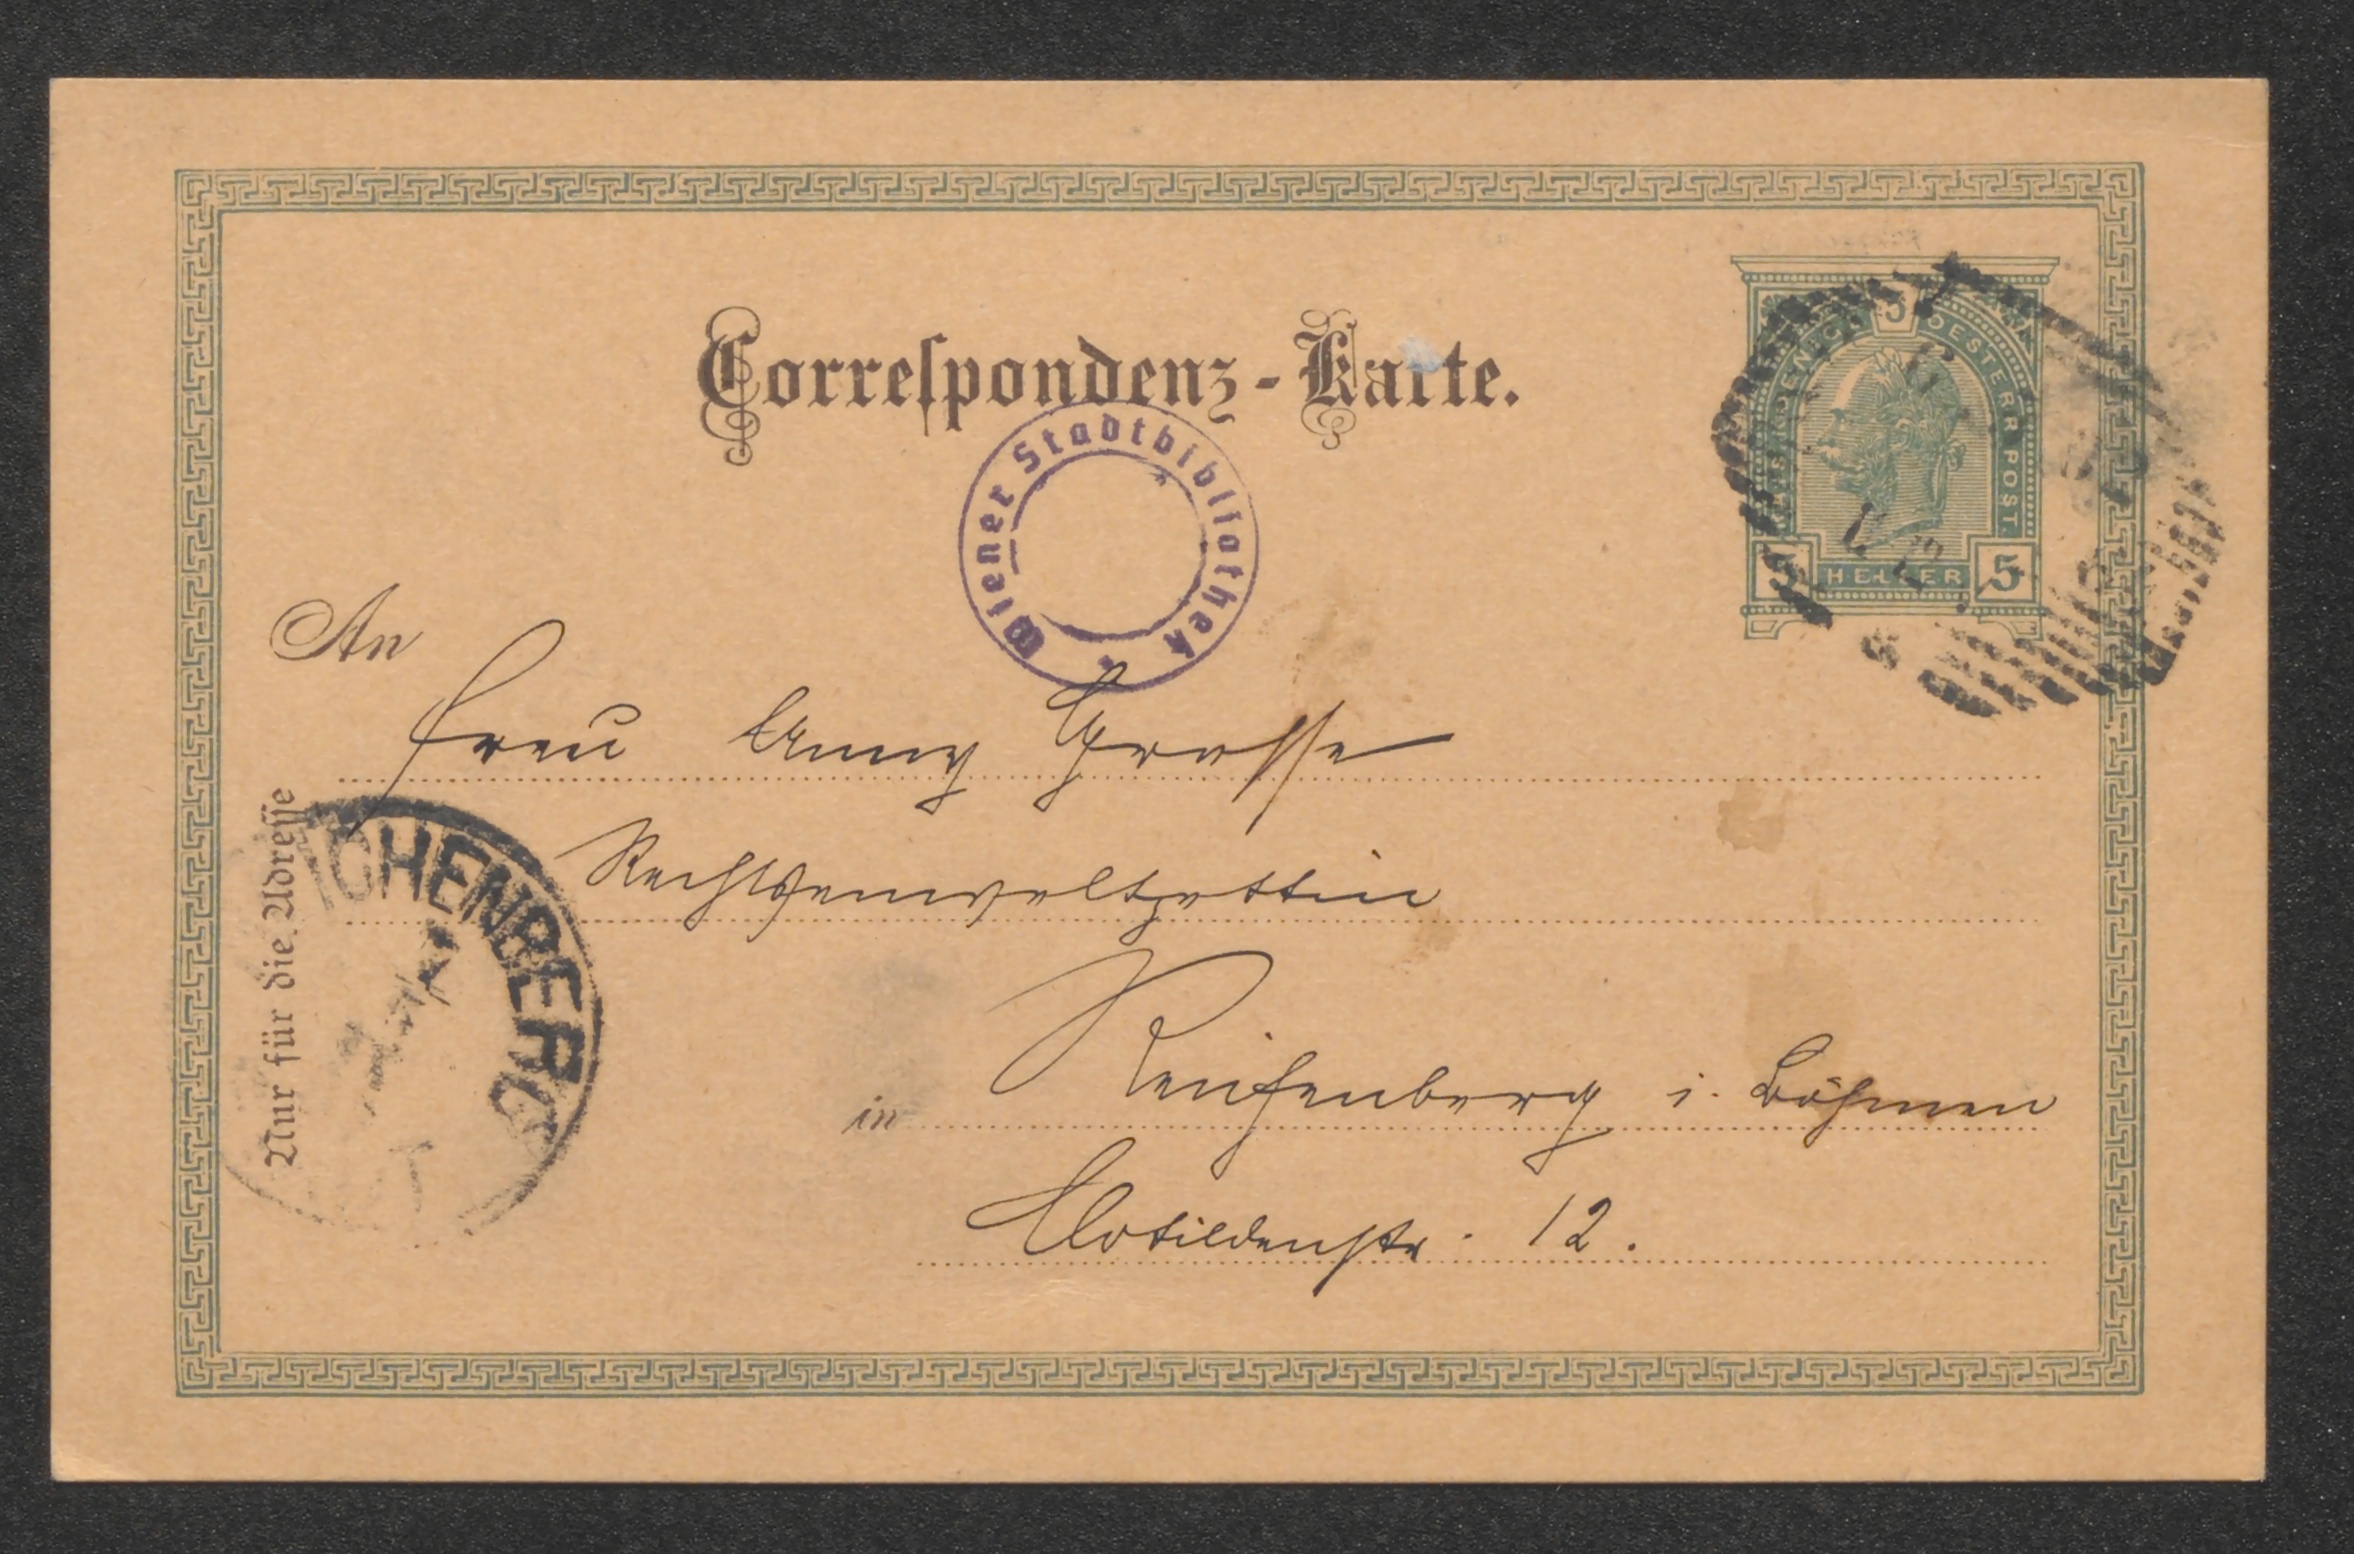 Correſpondenz-Karte.
Wiener Stadtbibliothek
5
KAIS. KÖNIGL. OESTERR. POST.
5 HELLER 5
An
Frau Anny Grosse
Rechtsanwaltsgattin
in Reichenberg i. Böhmen
Clotildenstr. 12.
Nur für die Adreſſe
ICHENBERG